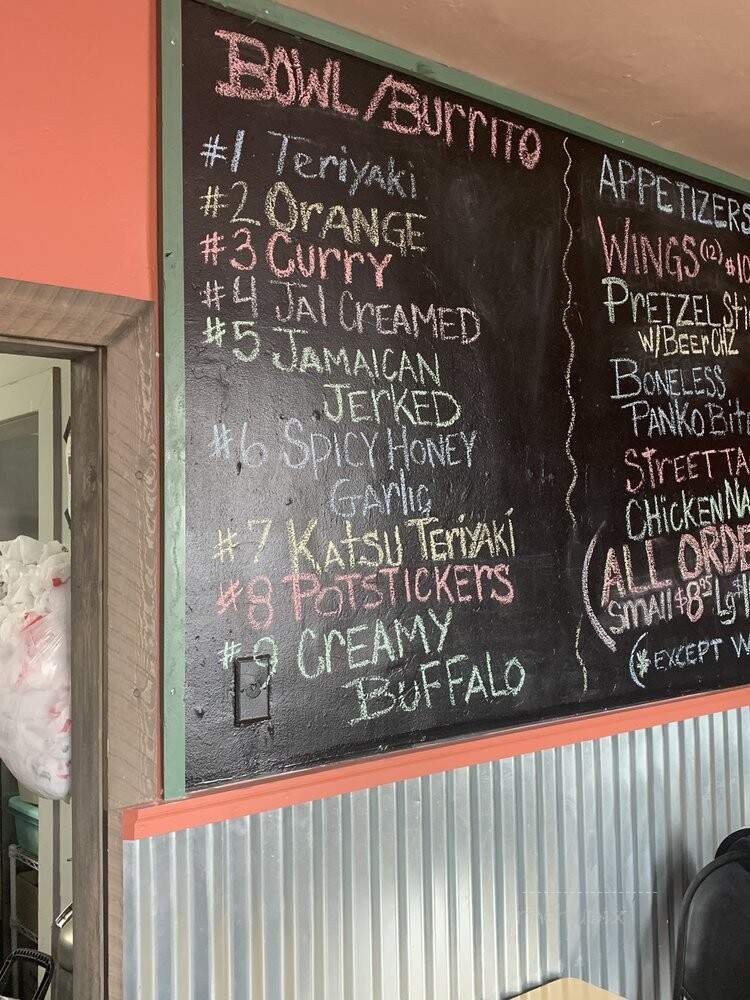 BOWL/BURRITO
#1 Teriyaki
#2 ORANGE
#3 CURRY
#4 JAL CREAMED
#5 JAMAICAN
JERKED
#6 SPICY HONEY
Garlic
#7 KATSU TERIYAKI
#8 POTSTICKERS
#9 CREAMY
BUFFALO
APPETIZERS
WINGS (12) $10
PRETZEL
W/BEER CHZ
BONELESS
PANKO
STREET
CHICKEN
(ALL
SMALL $8.95 Lg
(*EXCEPT